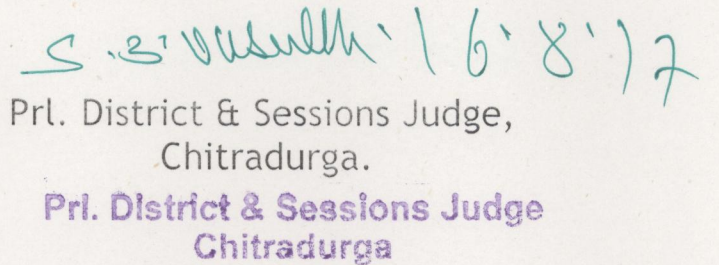 16.8.17
Prl. District & Sessions Judge,
Chitradurga.
Prl. District & Sessions Judge
Chitradurga